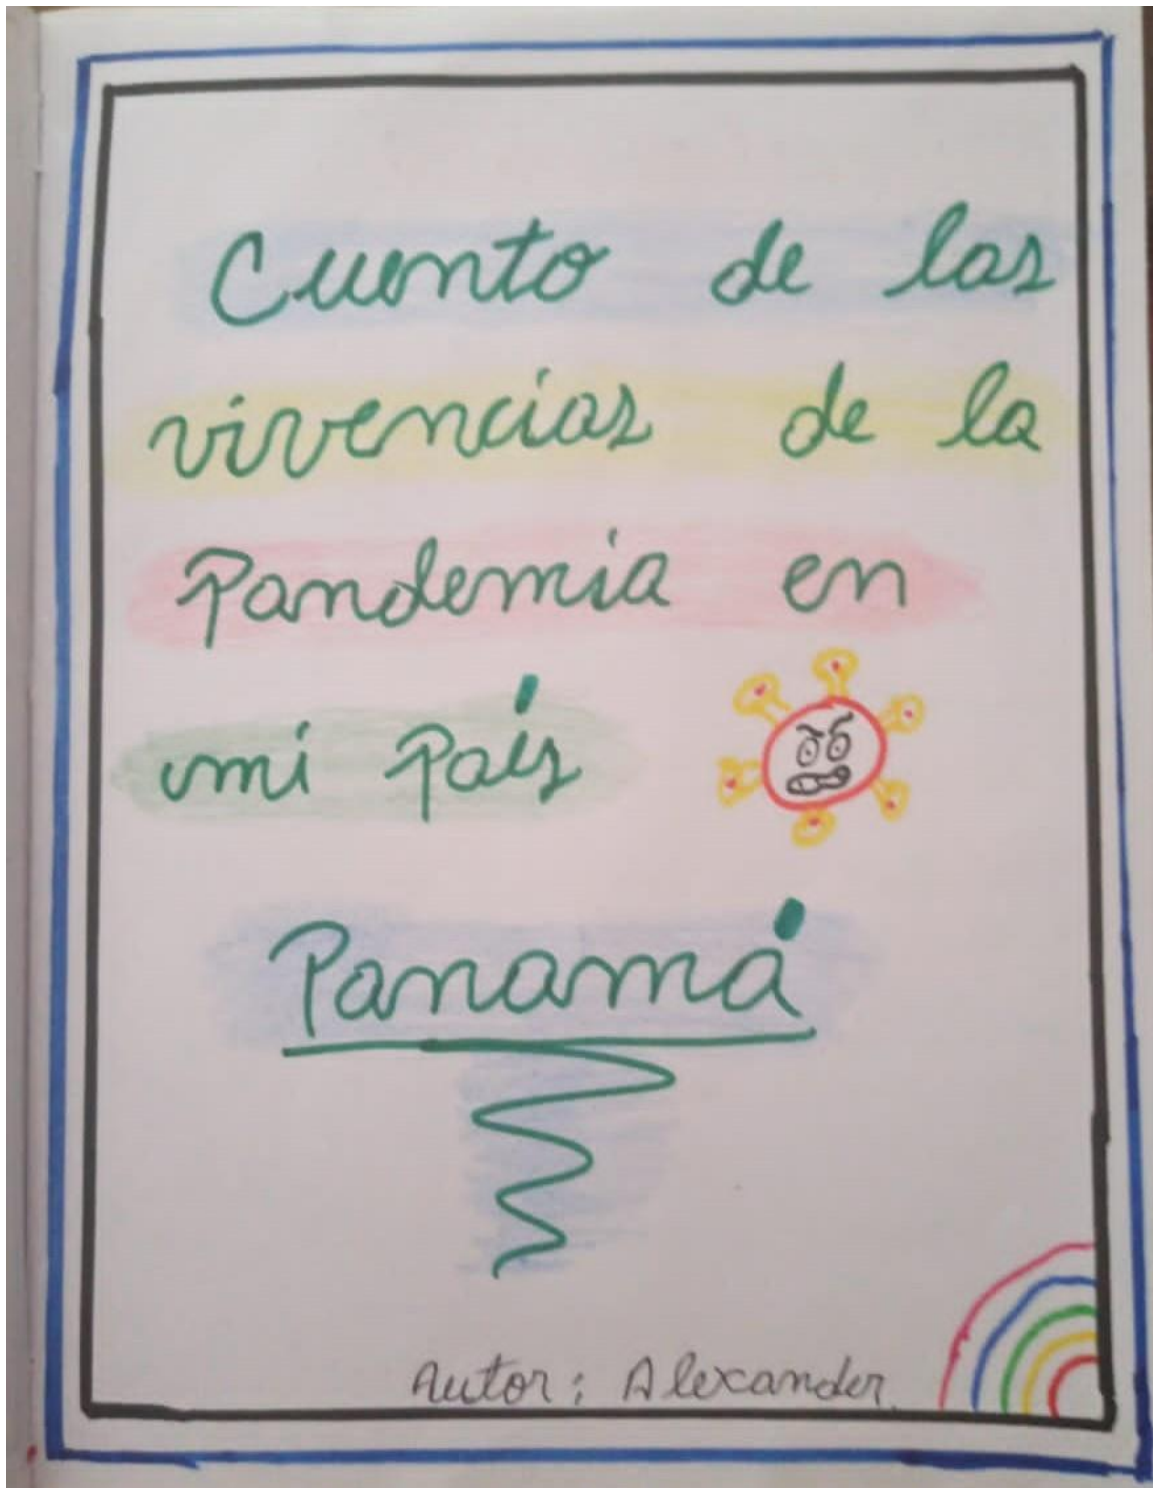 Cuento de las
vivencias de la
Pandemia en
mi País
Panamá
Autor: Alexander